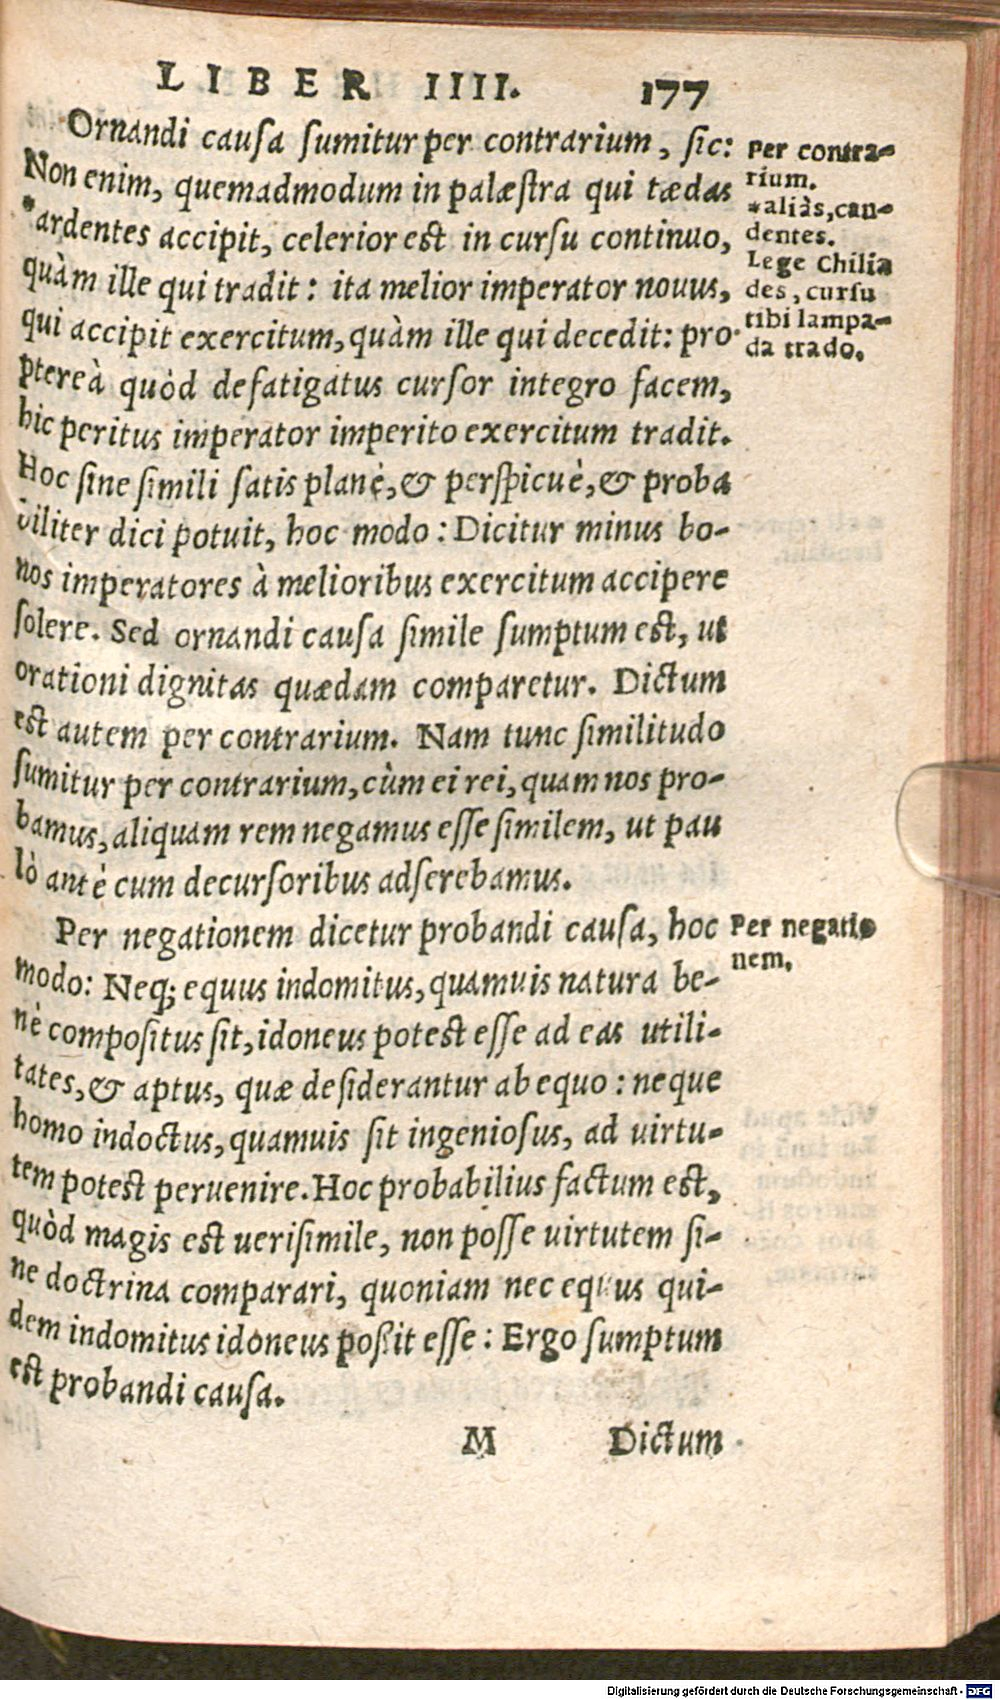 LIBER IIII. 177
Ornandi causa sumitur per contrarium, sic:
Non enim, quemadmodum in palæstra qui tædas
*ardentes accipit, celerior est in cursu continuo,
quàm ille qui tradit: ita melior imperator nouus,
qui accipit exercitum, quàm ille qui decedit: pro
ptereà quòd defatigatus cursor integro facem,
hic peritus imperator imperito exercitum tradit.
Hoc sine simili satis planè, & perspicuè, & proba
biliter dici potuit, hoc modo: Dicitur minus bo-
nos imperatores à melioribus exercitum accipere
solere. Sed ornandi causa simile sumptum est, ut
orationi dignitas quædam comparetur. Dictum
est autem per contrarium. Nam tunc similitudo
sumitur per contrarium, cùm ei rei, quam nos pro-
bamus, aliquam rem negamus esse similem, ut pau
lò antè cum decursoribus adserebamus.
Per negationem dicetur probandi causa, hoc
modo: Neq; equus indomitus, quamuis natura be-
nè compositus sit, idoneus potest esse ad eas utili-
tates, & aptus, quæ desiderantur ab equo: neque
homo indoctus, quamuis sit ingeniosus, ad uirtu-
tem potest peruenire. Hoc probabilius factum est,
quòd magis est uerisimile, non posse uirtutem si-
ne doctrina comparari, quoniam nec equus qui-
dem indomitus idoneus possit esse: Ergo sumptum
est probandi causa.
M Dictum
Per contra-
rium.
*aliàs, can-
dentes.
Lege Chilia
des, cursu
tibi lampa-
da trado.
Per negatio
nem.
Digitalisierung gefördert durch die Deutsche Forschungsgemeinschaft - DFG